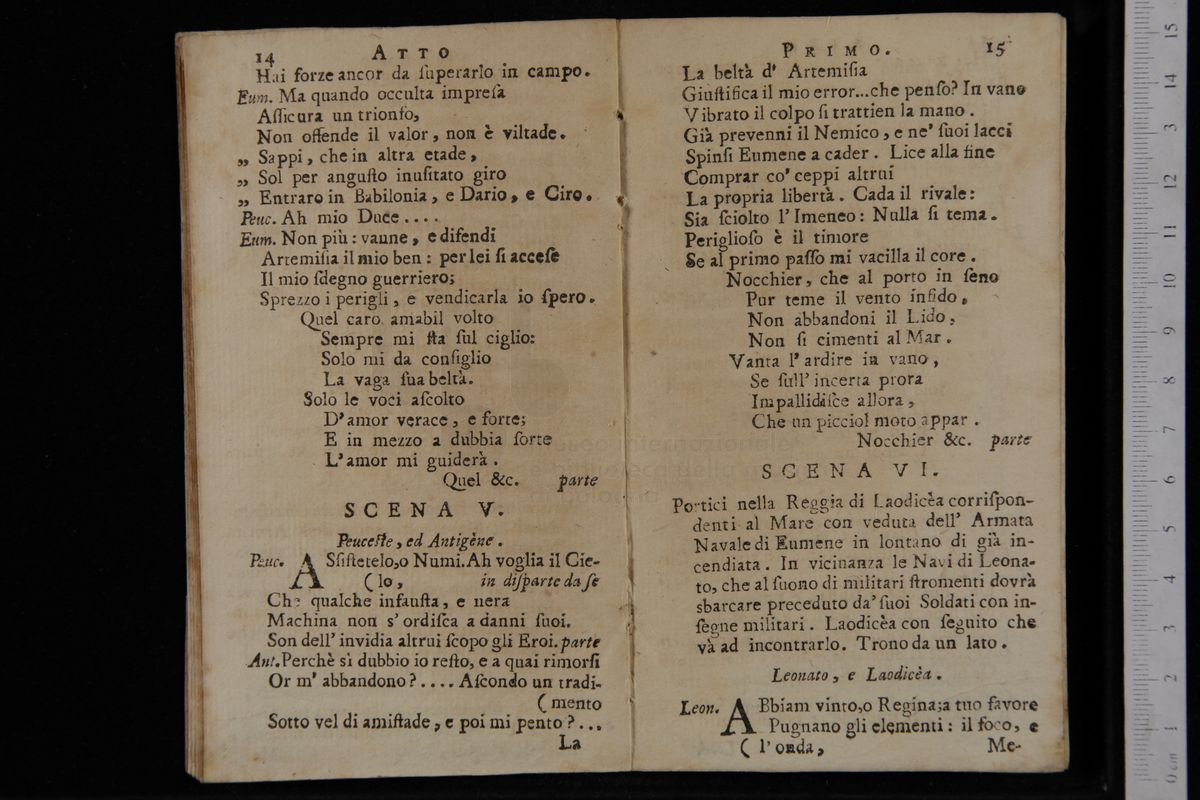 14 ATTO
Hai forze ancor da ſuperarlo in campo.
Eum. Ma quando occulta impreſa
Aſſicura un trionfo,
Non offende il valor, non è viltade.
„ Sappi, che in altra etade,
„ Sol per anguſto inuſitato giro
„ Entraro in Babilonia, e Dario, e Ciro.
Peuc. Ah mio Duce....
Eum. Non più: vanne, e difendi
Artemiſia il mio ben: per lei ſi acceſe
Il mio ſdegno guerriero;
Sprezzo i perigli, e vendicarla io ſpero.
Quel caro amabil volto
Sempre mi ſta ſul ciglio:
Solo mi da conſiglio
La vaga ſua beltà.
Solo le voci aſcolto
D'amor verace, e forte;
E in mezzo a dubbia ſorte
L'amor mi guiderà.
Quel &c. parte
SCENA V.
Peuceſte, ed Antigène.
Peuc. ASſiſtetelo, o Numi. Ah voglia il Cie-
(lo, in diſparte da ſe
Che qualche infauſta, e nera
Machina non s'ordiſca a danni ſuoi.
Son dell'invidia altrui ſcopo gli Eroi. parte
Ant. Perchè sì dubbio io reſto, e a quai rimorſi
Or m'abbandono?.... Aſcondo un tradi-
(mento
Sotto vel di amiſtade, e poi mi pento?...
La
PRIMO. 15
La beltà d'Artemiſia
Giuſtifica il mio error...che penſo? In vano
Vibrato il colpo ſi trattien la mano.
Già prevenni il Nemico, e ne' ſuoi lacci
Spinſi Eumene a cader. Lice alla fine
Comprar co' ceppi altrui
La propria libertà. Cada il rivale:
Sia ſciolto l'Imeneo: Nulla ſi tema.
Periglioſo è il timore
Se al primo paſſo mi vacilla il core.
Nocchier, che al porto in ſeno
Pur teme il vento infido,
Non abbandoni il Lido,
Non ſi cimenti al Mar.
Vanta l'ardire in vano,
Se ſull'incerta prora
Impallidiſce allora,
Che un picciol moto appar.
Nocchier &c. parte
SCENA VI.
Portici nella Reggia di Laodicèa corriſpon-
denti al Mare con veduta dell'Armata
Navale di Eumene in lontano di già in-
cendiata. In vicinanza le Navi di Leona-
to, che al ſuono di militari ſtromenti dovrà
sbarcare preceduto da' ſuoi Soldati con in-
ſegne militari. Laodicèa con ſeguito che
và ad incontrarlo. Trono da un lato.
Leonato, e Laodicèa.
Leon. ABbiam vinto, o Regina; a tuo favore
Pugnano gli elementi: il foco, e
(l'onda, Me-